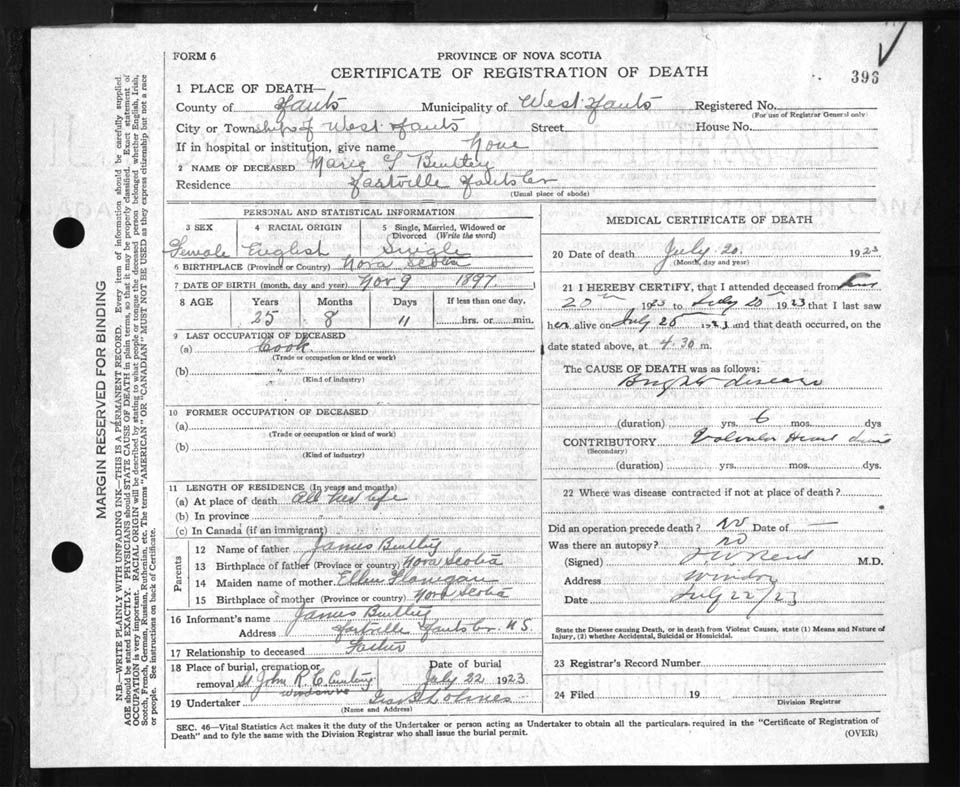 FORM 6
PROVINCE OF NOVA SCOTIA
CERTIFICATE OF REGISTRATION OF DEATH
396
1 PLACE OF DEATH—
County of Hants Municipality of West Hants Registered No.
(For use of Registrar General only)
City or Township of West Hants Street House No.
If in hospital or institution, give name None
2 NAME OF DECEASED Bentley
Residence Hants Co
(Usual place of abode)
PERSONAL AND STATISTICAL INFORMATION
3 SEX 4 RACIAL ORIGIN 5 Single, Married, Widowed or Divorced (Write the word)
Female English Single
6 BIRTHPLACE (Province or Country) Nova Scotia
7 DATE OF BIRTH (month, day and year) Nov 9 1897
8 AGE Years Months Days If less than one day,
25 8 11 hrs. or min.
9 LAST OCCUPATION OF DECEASED
(a) Cook
(Trade or occupation or kind of work)
(b) "
(Kind of industry)
10 FORMER OCCUPATION OF DECEASED
(a)
(Trade or occupation or kind of work)
(b)
(Kind of industry)
11 LENGTH OF RESIDENCE (In years and months)
(a) At place of death All her life
(b) In province
(c) In Canada (if an immigrant)
Parents
12 Name of father James Bentley
13 Birthplace of father (Province or country) Nova Scotia
14 Maiden name of mother Ellen Flanegan
15 Birthplace of mother (Province or country) Nova Scotia
16 Informant's name James Bentley
Address Hants Co. N S.
17 Relationship to deceased Father
18 Place of burial, cremation or Date of burial
removal St John R. C. July 22 1923
Windsor NS
19 Undertaker
(Name and Address)
MEDICAL CERTIFICATE OF DEATH
20 Date of death July 20 1923
(Month, day and year)
21 I HEREBY CERTIFY, that I attended deceased from
20th 1923 to July 20 1923 that I last saw
her alive on July 1923 and that death occurred, on the
date stated above, at 4.30 m.
The CAUSE OF DEATH was as follows:
Brights disease
(duration) yrs. 6 mos. dys
CONTRIBUTORY Valvular Heart
(Secondary)
(duration) yrs. mos. dys.
22 Where was disease contracted if not at place of death?
Did an operation precede death? No Date of —
Was there an autopsy? no
(Signed) M.D.
Address Windsor
Date July 22/23
State the Disease causing Death, or in death from Violent Causes, state (1) Means and Nature of
Injury, (2) whether Accidental, Suicidal or Homicidal.
23 Registrar's Record Number
24 Filed 19
Division Registrar
SEC. 46—Vital Statistics Act makes it the duty of the Undertaker or person acting as Undertaker to obtain all the particulars required in the "Certificate of Registration of
Death" and to fyle the same with the Division Registrar who shall issue the burial permit.
(OVER)
MARGIN RESERVED FOR BINDING
N.B.—WRITE PLAINLY WITH UNFADING INK—THIS IS A PERMANENT RECORD. Every item of information should be carefully supplied.
AGE should be stated EXACTLY. PHYSICIANS should STATE CAUSE OF DEATH in plain terms, so that it may be properly classified. Exact statement of
OCCUPATION is very important. RACIAL ORIGIN will be described by stating to what people or tongue the deceased person belonged whether English, Irish,
Scotch, French, German, Russian, Ruthenian, etc. The terms "AMERICAN" OR "CANADIAN" MUST NOT BE USED as they express citizenship but not a race
or people. See instructions on back of Certificate.